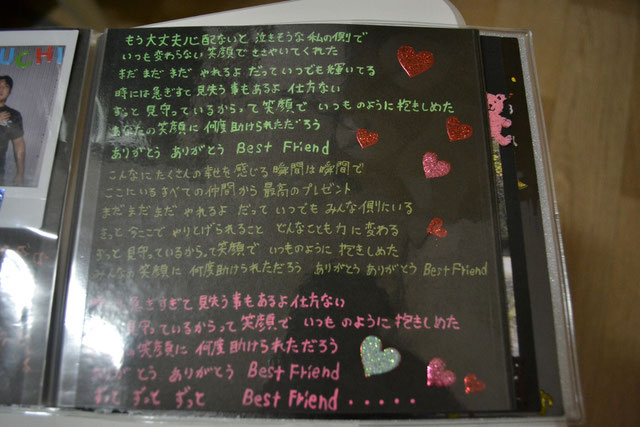 UCHI
もう大丈夫心配ないと 泣きそうな 私の側で
いつも変わらない笑顔で ささやいてくれた
まだ まだ まだ やれるよ だって いつでも 輝いてる
時には 急ぎすぎて 見失う事も あるよ 仕方ない
ずっと 見守っているからって 笑顔で いつものように 抱きしめた
あなたの笑顔に 何度助けられただろう
ありがとう ありがとう Best Friend
こんなに たくさんの 幸せを 感じる 瞬間は 瞬間で
ここにいる すべての仲間から 最高のプレゼント
まだまだまだ やれるよ だって いつでも みんな側にいる
きっと 今ここで やりとげられること どんなことも 力に 変わる
ずっと 見守っているからって 笑顔で いつものように 抱きしめた
みんなの 笑顔に 何度助けられただろう ありがとう ありがとう Best Friend
時には 急ぎすぎて 見失う事もあるよ 仕方ない
見守っているからって 笑顔で いつも のように 抱きしめた
の笑顔に 何度助けられただろう
ありがとう ありがとう Best Friend
ずっと ずっと ずっと Best Friend . . . . .